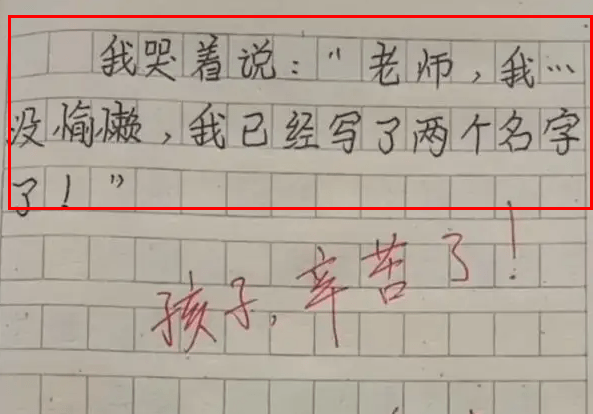 我哭着说："老师,我…
没偷懒,我已经写了两个名字
了!"
孩子,辛苦了!